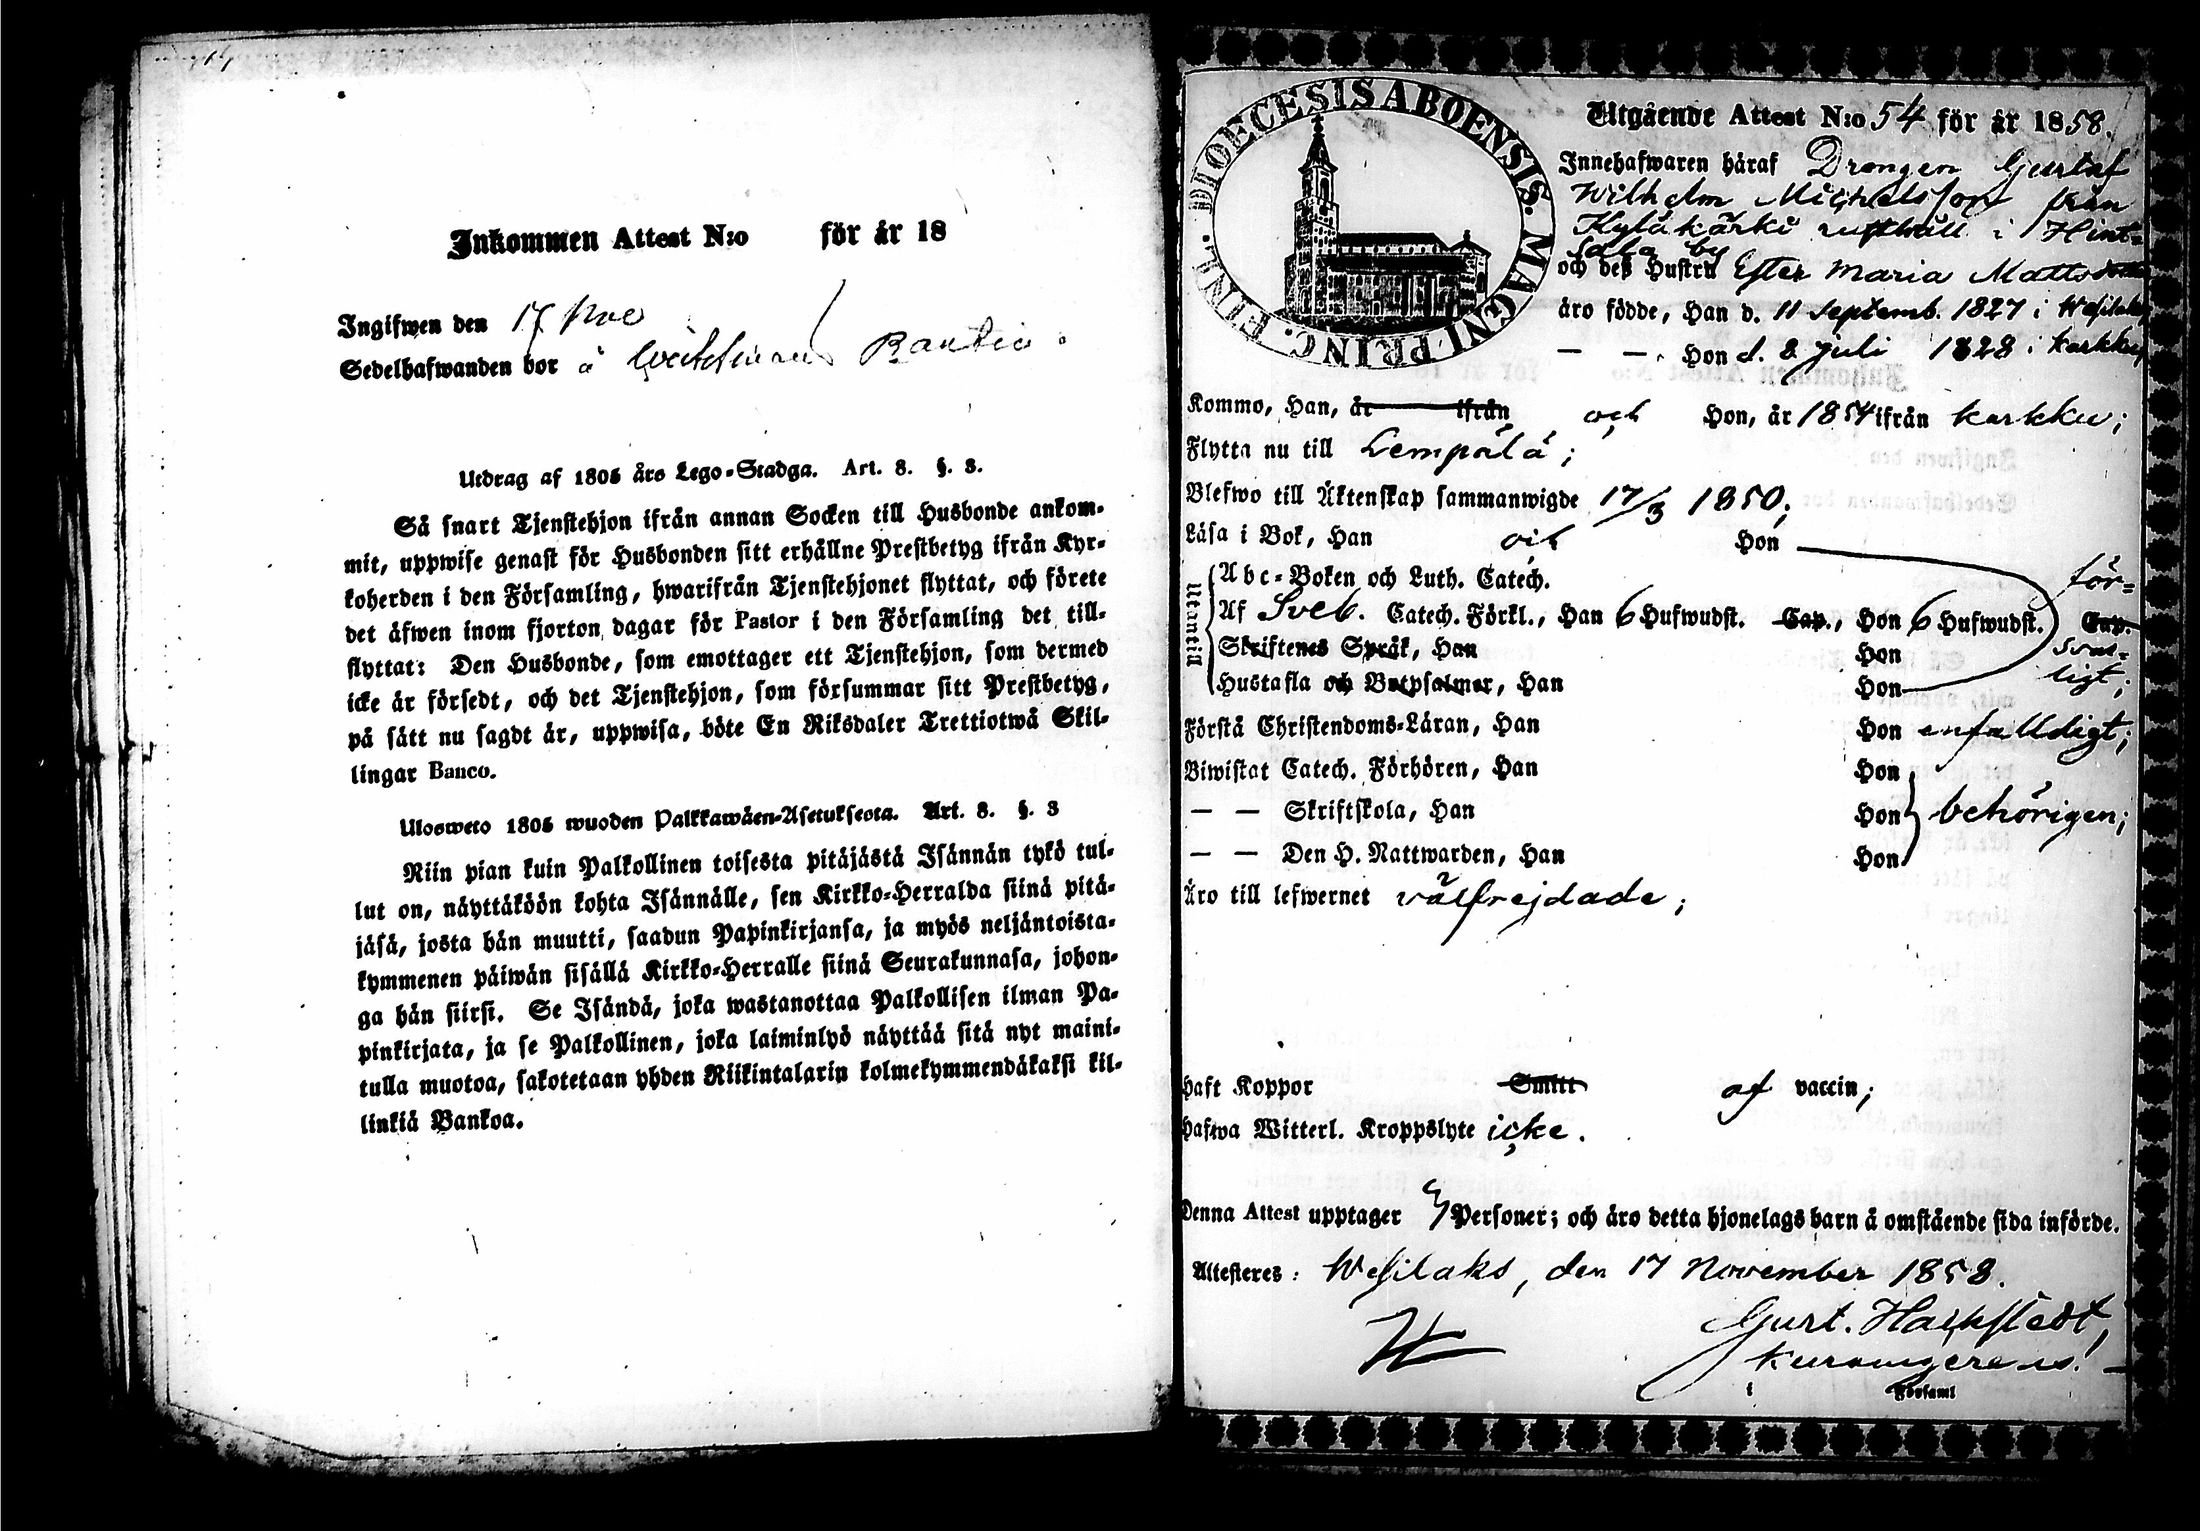 Inkommen Attest N:o för år 18
Ingifwen den 17 Nov
Sedelhafwanden bor å
Utdrag af 1805 års Lego-Stadga. Art. 8. §. 3.
Så snart Tjenstehjon ifrån annan Socken till Husbonde ankom-
mit, uppwise genast för Husbonden sitt erhållne Prestbetyg ifrån Kyr-
koherden i den Församling, hwarifrån Tjenstehjonet flyttat, och förete
det äfwen inom fjorton dagar för Pastor i den Församling det till-
flyttat: Den Husbonde, som emottager ett Tjenstehjon, som dermed
icke är försedt, och det Tjenstehjon, som försummar sitt Prestbetyg,
på sätt nu sagdt är, uppwisa, böte En Riksdaler Trettiotwå Skil-
lingar Banco.
Ulosweto 1805 wuoden Palkkawäen-Asetuksesta. Art. 8. §. 3
Niin pian kuin Palkollinen toisesta pitäjästä Isännän tykö tul-
lut on, näyttäköön kohta Isännälle, sen Kirkko-Herralda siinä pitä-
jäsä, josta hän muutti, saadun Papinkirjansa, ja myös neljäntoista-
kymmenen päiwän sisällä Kirkko-Herralle siinä Seurakunnasa, johon-
ga hän siirsi. Se Isändä, joka wastanottaa Palkollisen ilman Pa-
pinkirjata, ja se Palkollinen, joka laiminlyö näyttää sitä nyt maini-
tulla muotoa, sakotetaan yhden Riikintalarin kolmekymmendäkaksi kil-
linkiä Bankoa.
DIOECESIS ABOENSIS. MAGNI PRINC. FINL.
Utgående Attest N:o 54 för år 1858.
Innehafwaren häraf Drengen Gustaf
Wilhelm Michelsson från
Kyläkärki rusthåll i Hint-
sala by
och deß Hustru Ester Maria Mattsdotter
äro födde, Han d. 11 Septemb. 1827 i Wesilaks,
— — Hon d. 8 Juli 1828 i Karkku,
Kommo, Han, år ifrån och Hon, år 1854 ifrån Karkku;
Flytta nu till Lempälä;
Blefwo till Äktenskap sammanwigde 17/3 1850;
Läsa i Bok, Han och Hon
Utantill
Abc-Boken och Luth. Catech.
Af Sveb. Catech. Förkl., Han 6 Hufwudst. Cap., Hon 6 Hufwudst. Cap.
Skriftenes Språk, Han Hon
Hustafla och Botpsalmer, Han Hon
för-
svar-
ligt;
Förstå Christendoms-Läran, Han Hon enfalldigt;
Biwistat Catech. Förhören, Han Hon
— — Skriftskola, Han Hon behörigen;
— — Den H. Nattwarden, Han Hon
Äro till lefwernet välfrejdade;
Haft Koppor Smitt af vaccin;
Hafwa Witterl. Kroppslyte icke.
Denna Attest upptager Personer; och äro detta hjonelags barn å omstående sida införde.
Attesteres: Wesilaks, den 17 November 1858.
Gust.
i Församl